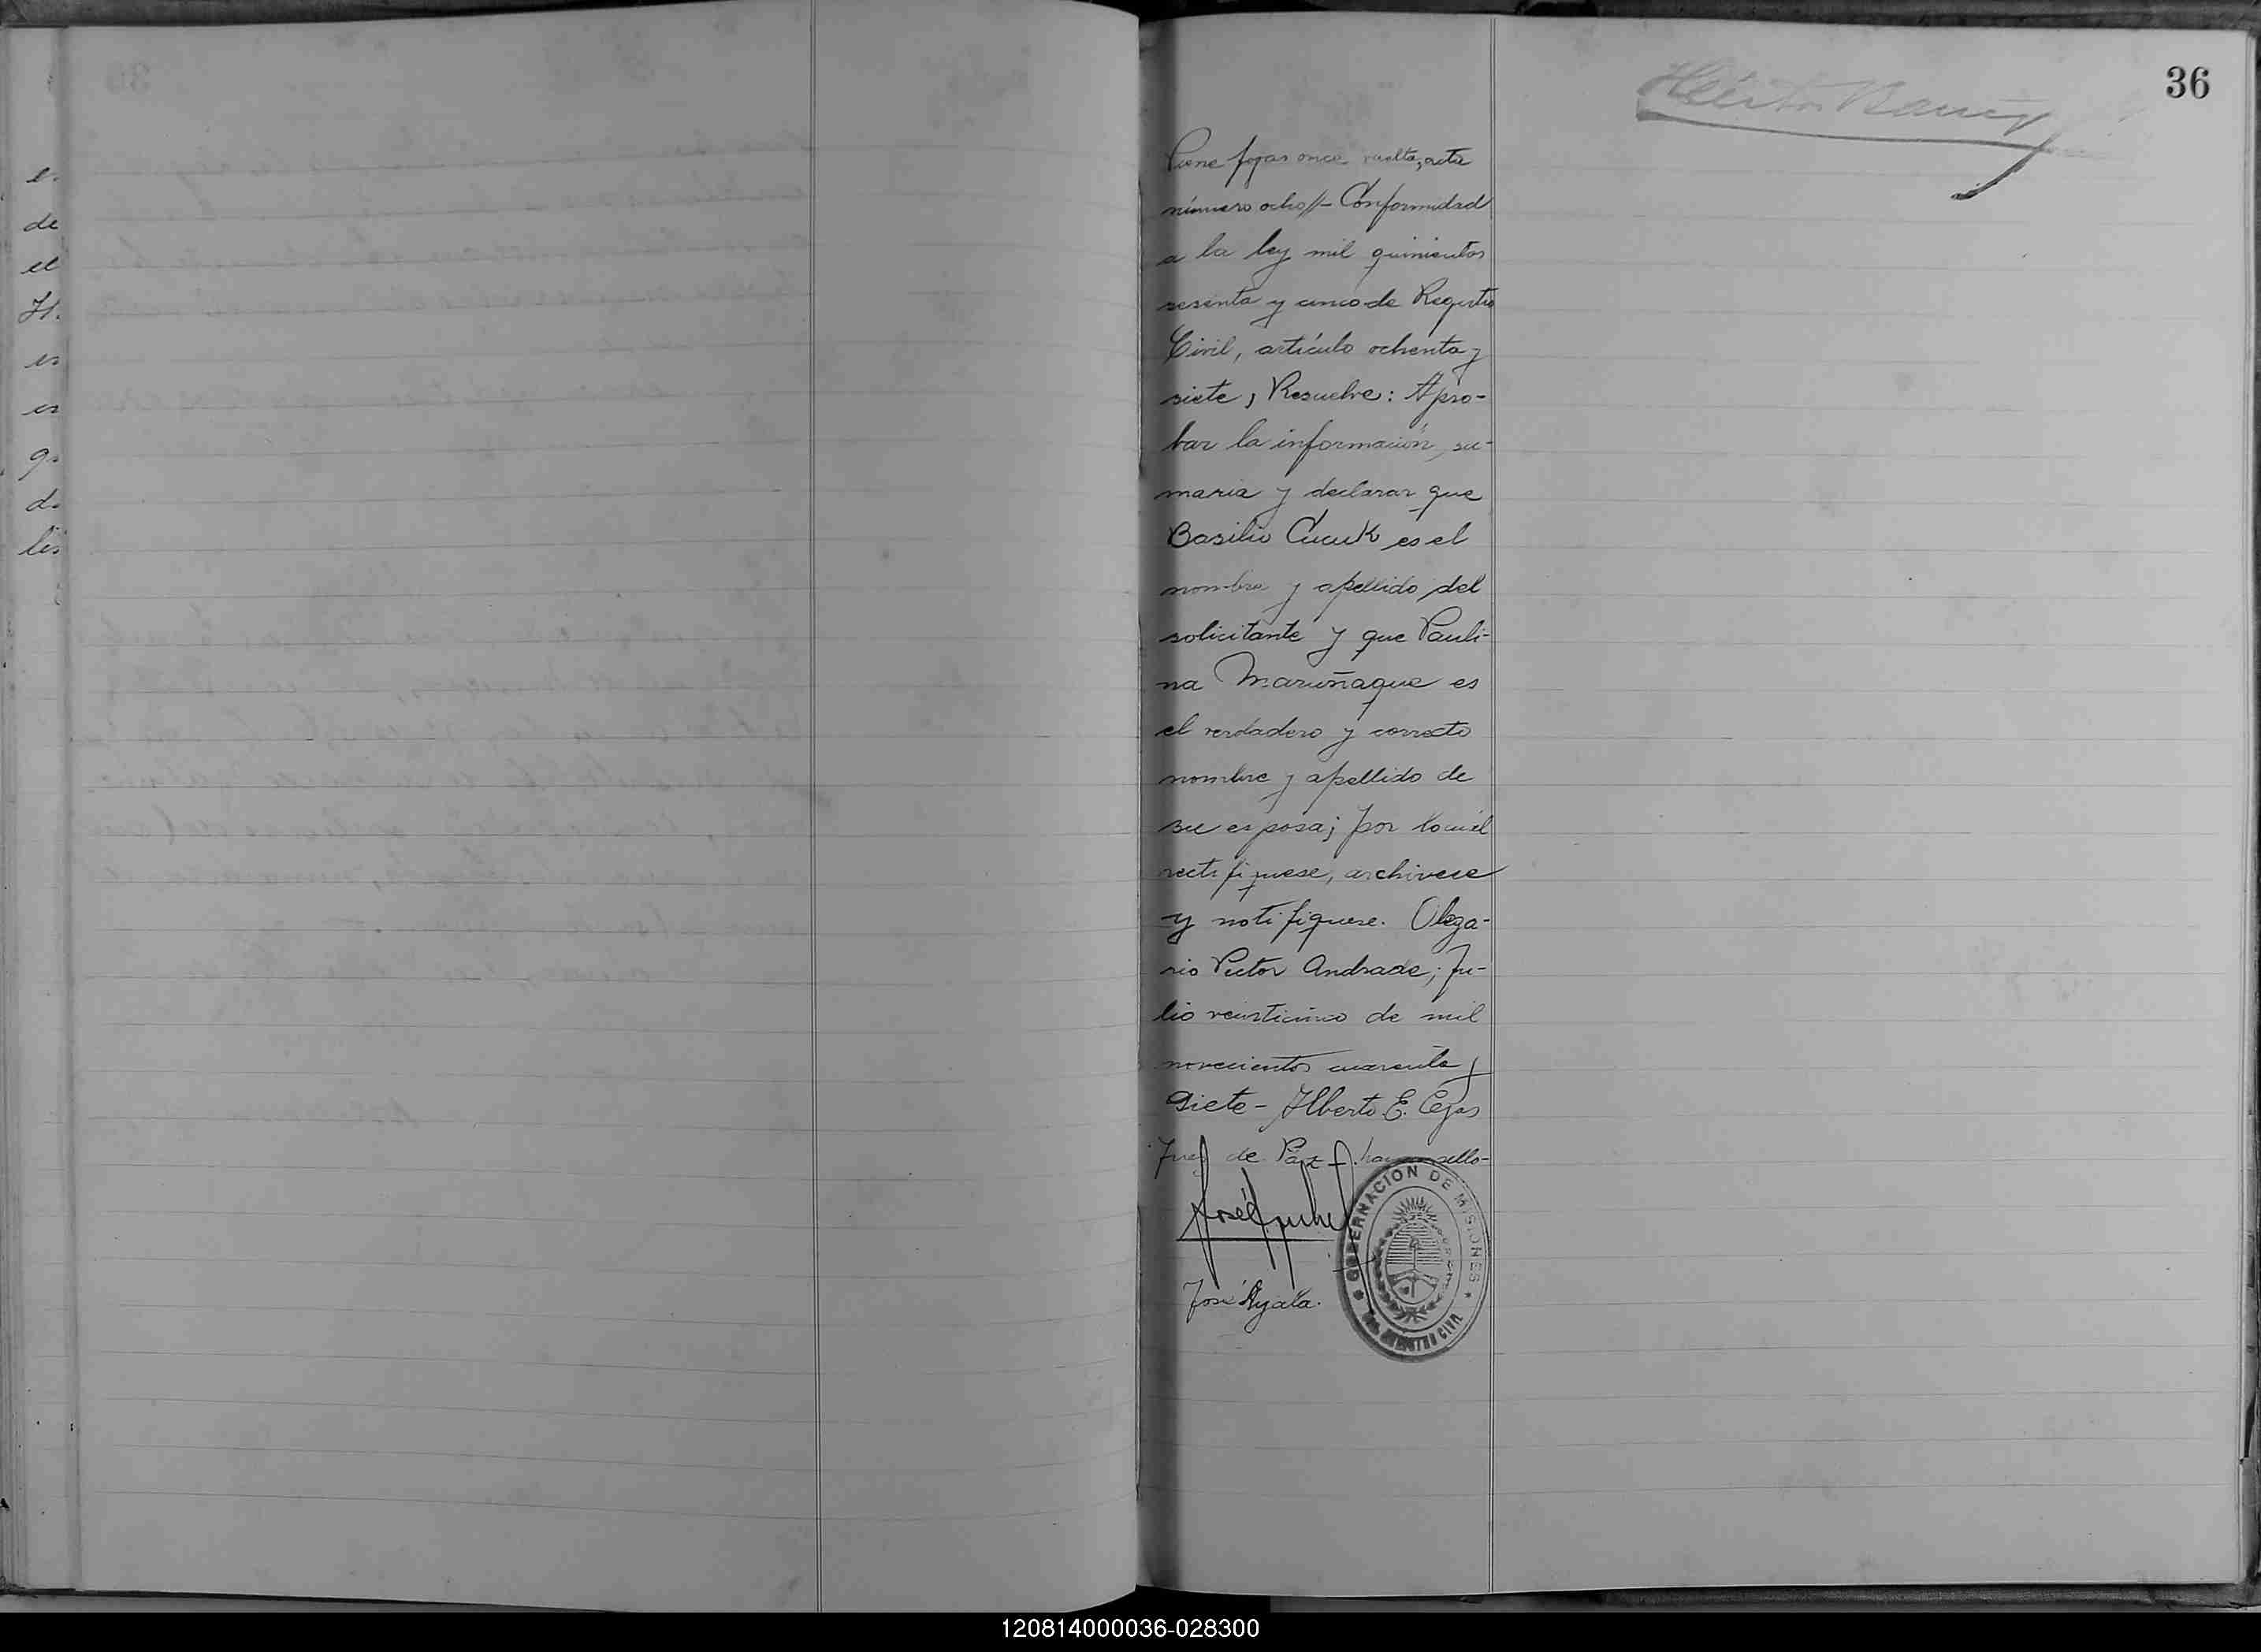 36
Viene fojas once vuelta, acta
número ocho//- Conformidad
a la ley mil quinientos
sesenta y cinco de Registro
Civil, artículo ochenta y
siete, Resuelve: Apro-
bar la información, su-
maria y declarar que
Basilio Cucuk es el
nombre y apellido del
solicitante y que Pauli-
na Maruñaque es
el verdadero y correcto
nombre y apellido de
su esposa; por lo cuál
rectifiquese, archivese
y notifiquese. Olega-
rio Victor Andrade, Ju-
lio veinticinco de mil
novecientos cuarenta y
siete - Alberto E. Cejas
Juez de Paz - hay un sello-
GOBERNACION DE MISIONES
REGISTRO CIVIL
José Ayala.
e.
de
el
H.
es
es
q.
d.
lis
120814000036-028300